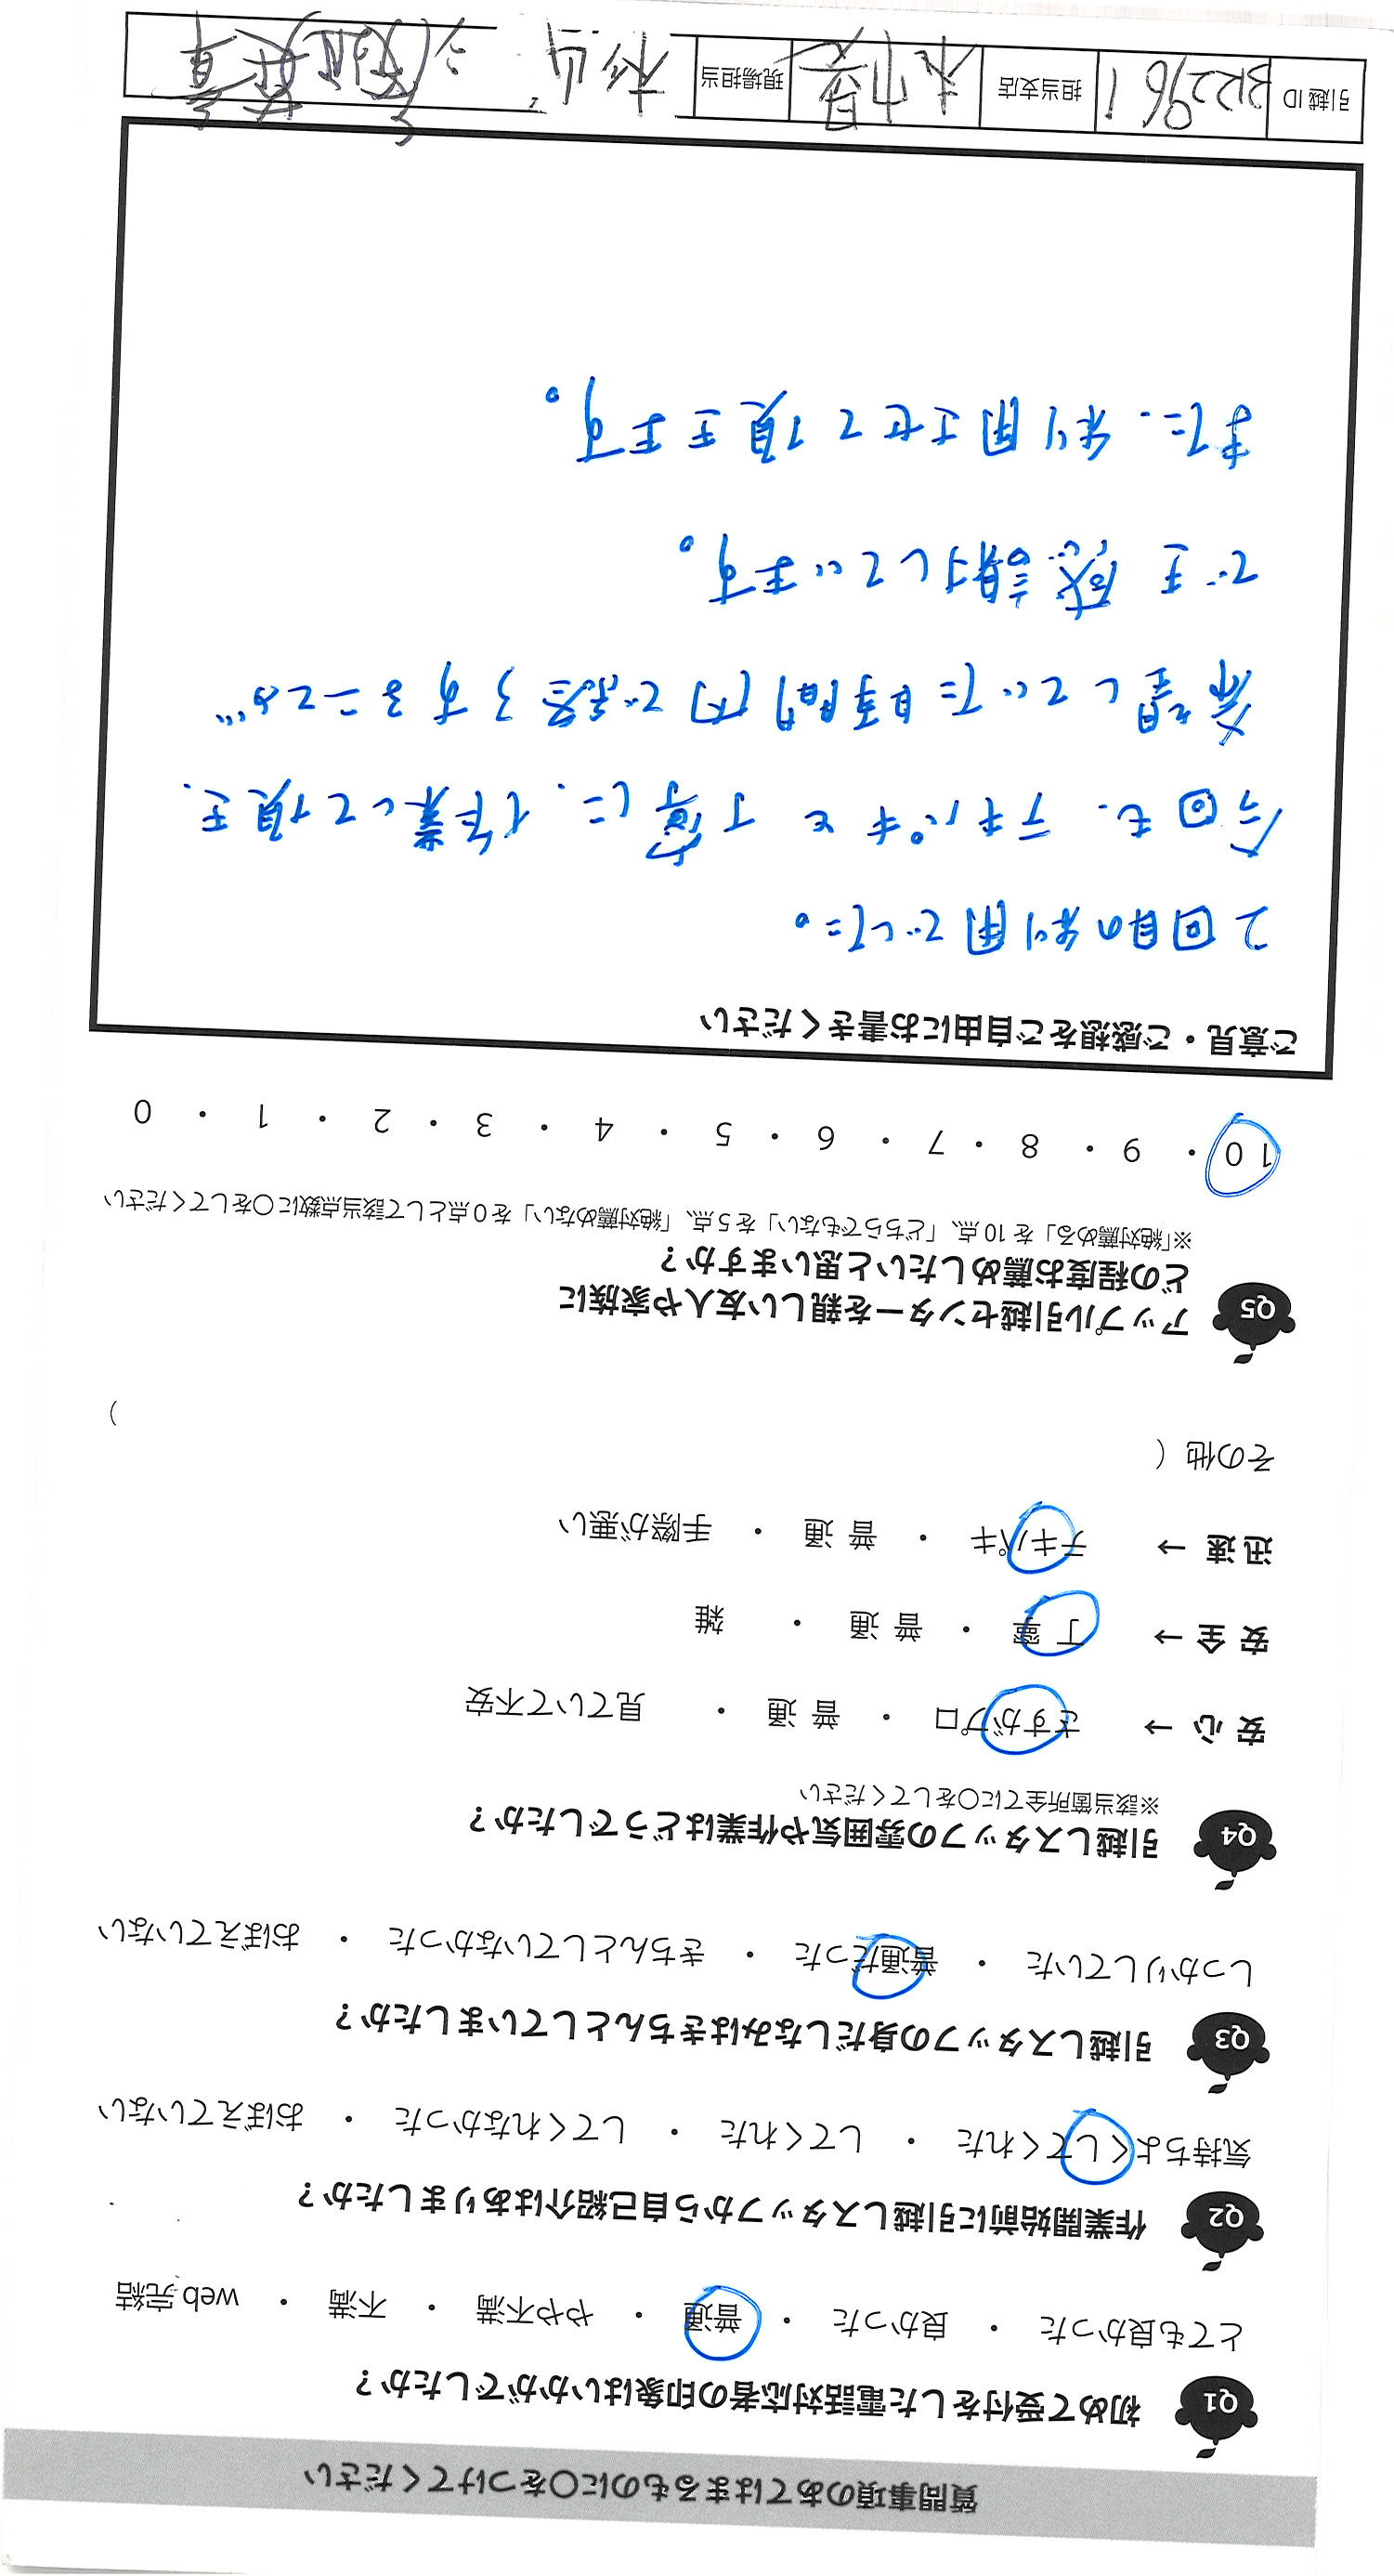 質問事項のあてはまるものに○をつけてください
Q1 初めて受付をした電話対応者の印象はいかがでしたか?
とても良かった ・ 良かった ・ 普通 ・ やや不満 ・ 不満 ・ web完結
Q2 作業開始前に引越しスタッフから自己紹介はありましたか?
気持ちよくしてくれた ・ してくれた ・ してくれなかった ・ おぼえていない
Q3 引越しスタッフの身だしなみはきちんとしていましたか?
しっかりしていた ・ 普通だった ・ きちんとしていなかった ・ おぼえていない
Q4 引越しスタッフの雰囲気や作業はどうでしたか?
※該当箇所全てに○をしてください
安心 → さすがプロ ・ 普通 ・ 見ていて不安
安全 → 丁寧 ・ 普通 ・ 雑
迅速 → テキパキ ・ 普通 ・ 手際が悪い
その他 ( )
Q5 アップル引越センターを親しい友人や家族に
どの程度お薦めしたいと思いますか?
※「絶対薦める」を10点、「どちらでもない」を5点、「絶対薦めない」を0点として該当点数に○をしてください
10 ・ 9 ・ 8 ・ 7 ・ 6 ・ 5 ・ 4 ・ 3 ・ 2 ・ 1 ・ 0
ご意見・ご感想をご自由にお書きください
2回目の利用でした。
今回も、テキパキと丁寧に、作業して頂き、
希望していた時間内で終了することが
でき感謝しています。
また、利用させて頂きます。
引越ID 3122961 担当支店 現場担当 杉山